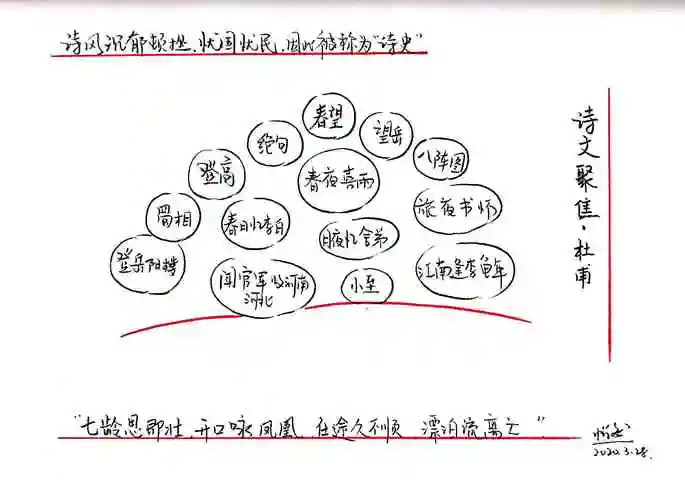 诗风沉郁顿挫、忧国忧民,因此被称为"诗史"
春望
绝句
望岳
登高
春夜喜雨
八阵图
蜀相
春日忆李白
月夜忆舍弟
旅夜书怀
登岳阳楼
闻官军收河南
河北
小至
江南逢李龟年
诗文聚焦·杜甫
"七龄思即壮,开口咏凤凰,在途久不顺 漂泊流离亡"
2020.3.28.